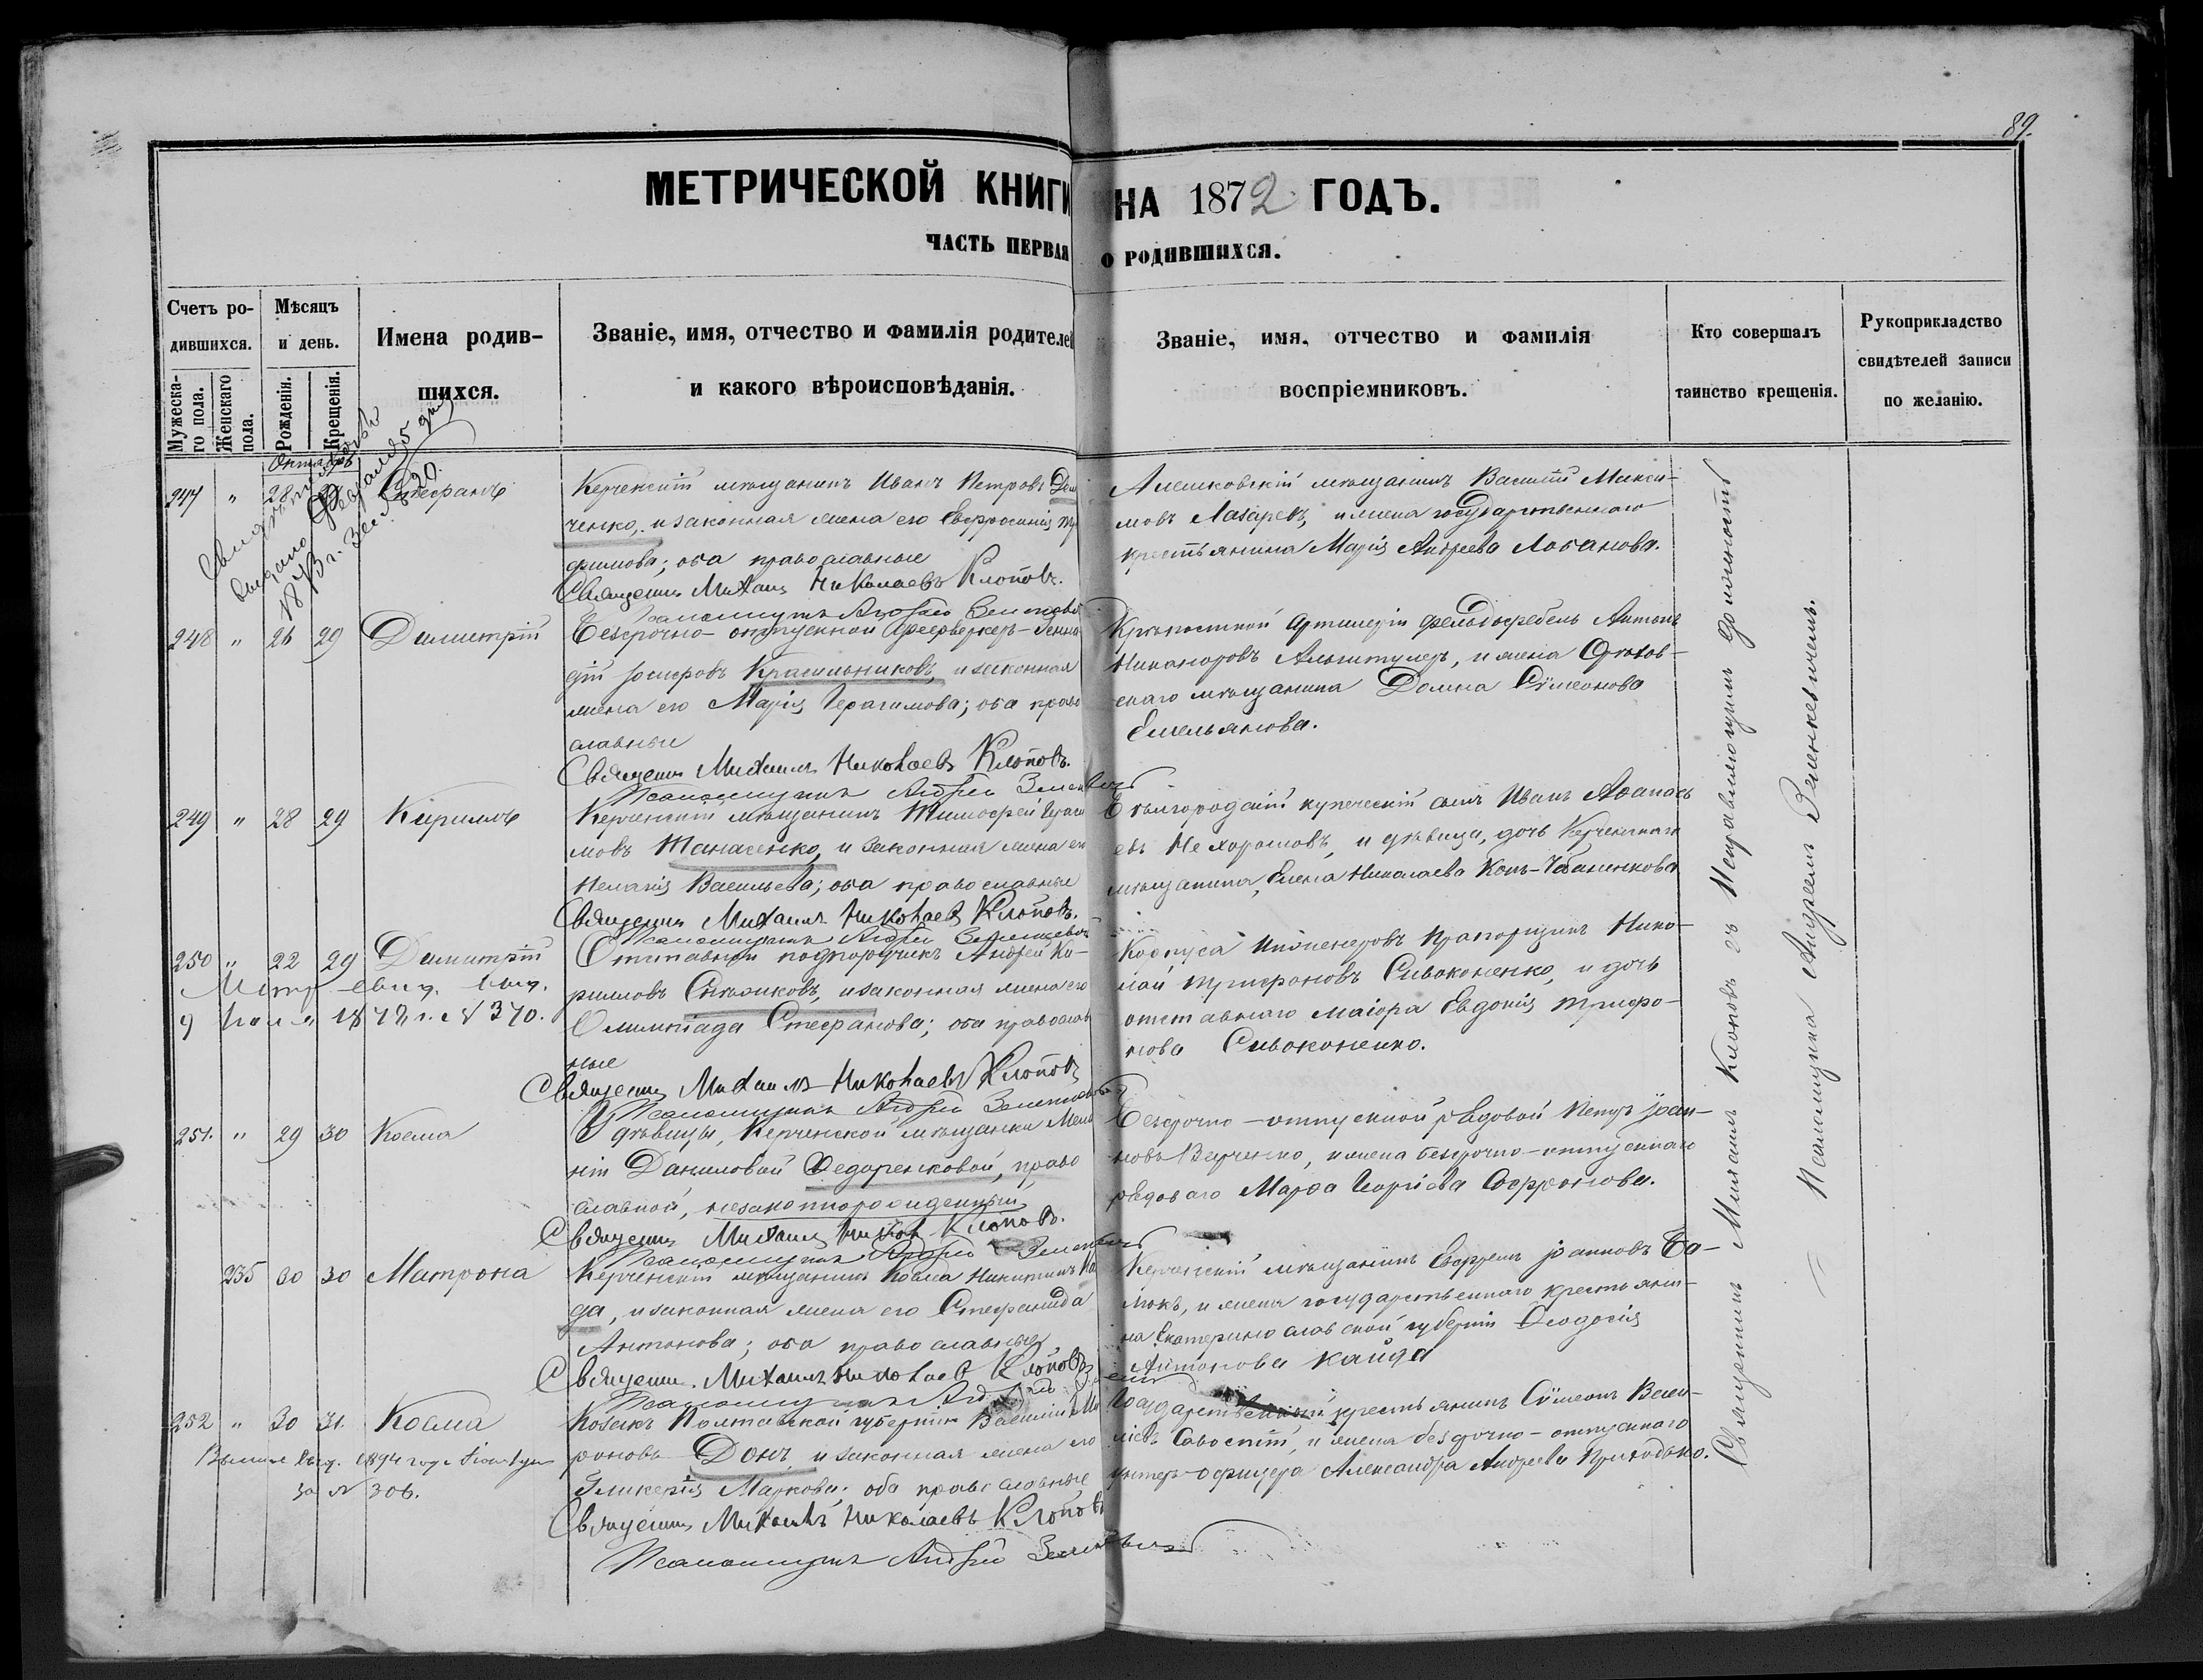 89.
МЕТРИЧЕСКОЙ КНИГИ НА 1872 ГОДЪ.
ЧАСТЬ ПЕРВАЯ О РОДИВШИХСЯ.
Счетъ ро-
дившихся.
Мужеска-
го пола.
Женскаго
пола.
Мѣсяцъ
и день.
Рожденія.
Крещенія.
Имена родив-
шихся.
Званіе, имя, отчество и фамилія родителей
и какого вѣроисповѣданія.
Званіе, имя, отчество и фамилія
воспріемниковъ.
Кто совершалъ
таинство крещенія.
Рукоприкладство
свидѣтелей записи
по желанію.
Октябрь
247 " 28 29 Стефанъ
выдано
1873 г. 830.
Керченскій мѣщанинъ Иванъ Петровъ
ченко, и законная жена его Евфросинія
фимова; оба православные
Священникъ Михаилъ Николаевъ Клоповъ.
Псаломщикъ Андрей Зеленкевичъ
Алешковскій мѣщанинъ Василій Макси-
мовъ Лазаревъ, и жена государственнаго
крестьянина Марія Андреева Лобанова.
248 " 26 29 Димитрій
Безсрочно-отпускной Фейерверкеръ Генна-
дій Іосифовъ Красильниковъ, и законная
жена его Марія Герасимова; оба право
славные
Священникъ Михаилъ Николаевъ Клоповъ.
Псаломщикъ Андрей Зеленкевичъ
Крѣпостной Артилеріи фельдфебель Антонъ
Никаноровъ Альштулеръ, и жена Орѣхов-
скаго мѣщанина Домна Сѵмеонова
Емельянова.
249 " 28 29 Кириллъ
Керченскій мѣщанинъ Тимофей Гераси
мовъ Танасенко, и законная жена его
Меланія Васильева; оба православные
Священникъ Михаилъ Николаевъ Клоповъ.
Псаломщикъ Андрей Зеленкевичъ
Бѣлгородскій купеческій сынъ Иванъ Аѳанась
евъ Нехорошовъ, и дѣвица, дочь Керченскаго
мѣщанина, Елена Николаева Конъ-Чабаненкова
250 " 22 29 Димитрій
Метр. свид. выд.
9 1872 г. № 370.
Отставной подпоручикъ Андрей Ки-
рилловъ Сотниковъ, и законная жена его
Олимпіада Стефанова; оба православ
ные
Священникъ Михаилъ Николаевъ Клоповъ
Псаломщикъ Андрей Зеленкевичъ
Корпуса Инженеровъ Прапорщикъ Нико-
лай Трифоновъ Сивоконенко, и дочь
отставнаго маіора Евдокія Трифо-
нова Сивоконенко.
251. " 29 30 Косма
У дѣвицы, Керченской мѣщанки Мела
ніи Даниловой Ѳедоренковой, право
славной, незаконнорожденный
Священникъ Михаилъ Никол Клоповъ.
Псаломщикъ Андрей Зеленкевичъ
Безсрочно-отпускной рядовой Петръ Іоан-
новъ Верченко, и жена безсрочно-отпускнаго
рядоваго Марѳа Георгіева Софронова.
235 30 30 Матрона
Керченскій мѣщанинъ Косма Никитинъ
да, и законная жена его Стефанида
Антонова; оба православные,
Священникъ Михаилъ Николаевъ Клоповъ
Псаломщикъ Андрей
Керченскій мѣщанинъ Ефремъ Іоанновъ Ба-
люкъ, и жена государственнаго крестьяни-
на Екатеринославской губерніи Ѳеодосія
Антонова Кайда
252 " 30 31. Косма
1894 года
за № 306.
Козакъ Полтавской губерніи Василій Ми
роновъ Донъ, и законная жена его
Гликерія Маркова; оба православные
Священникъ Михаилъ Николаевъ Клоповъ
Псаломщикъ Андрей Зеленкевичъ
Государственный крестьянинъ Сѵмеонъ Васи-
ліевъ Савостій, и жена безсрочно-отпускнаго
унтеръ-офицера Александра Андреева Приходько.
Священникъ Михаилъ Клоповъ съ Исправляющимъ должность
Псаломщика Андреемъ Зеленкевичемъ.